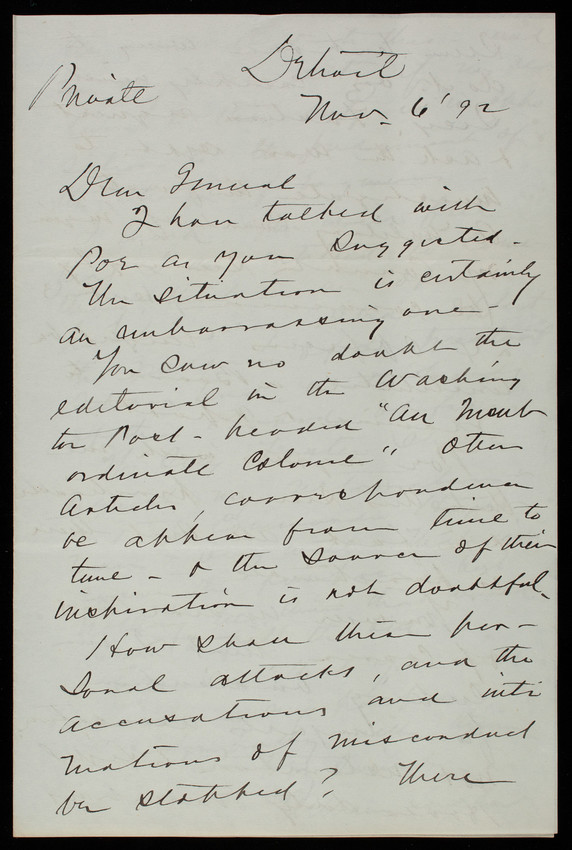 Detroit
Private
Nov. 6 '92
Dear General
I have talked with
Poe as you suggested -
The situation is certainly
an embarrassing one -
You saw no doubt the
editorial in the Washing
ton Post - headed "An Insub
ordinate Colonel" Other
articles, correspondence
&c appear from time to
time - & the source of their
inspiration is not doubtful.
How shall these per-
sonal attacks, and the
accusations and inti
mations of misconduct
be stopped? There